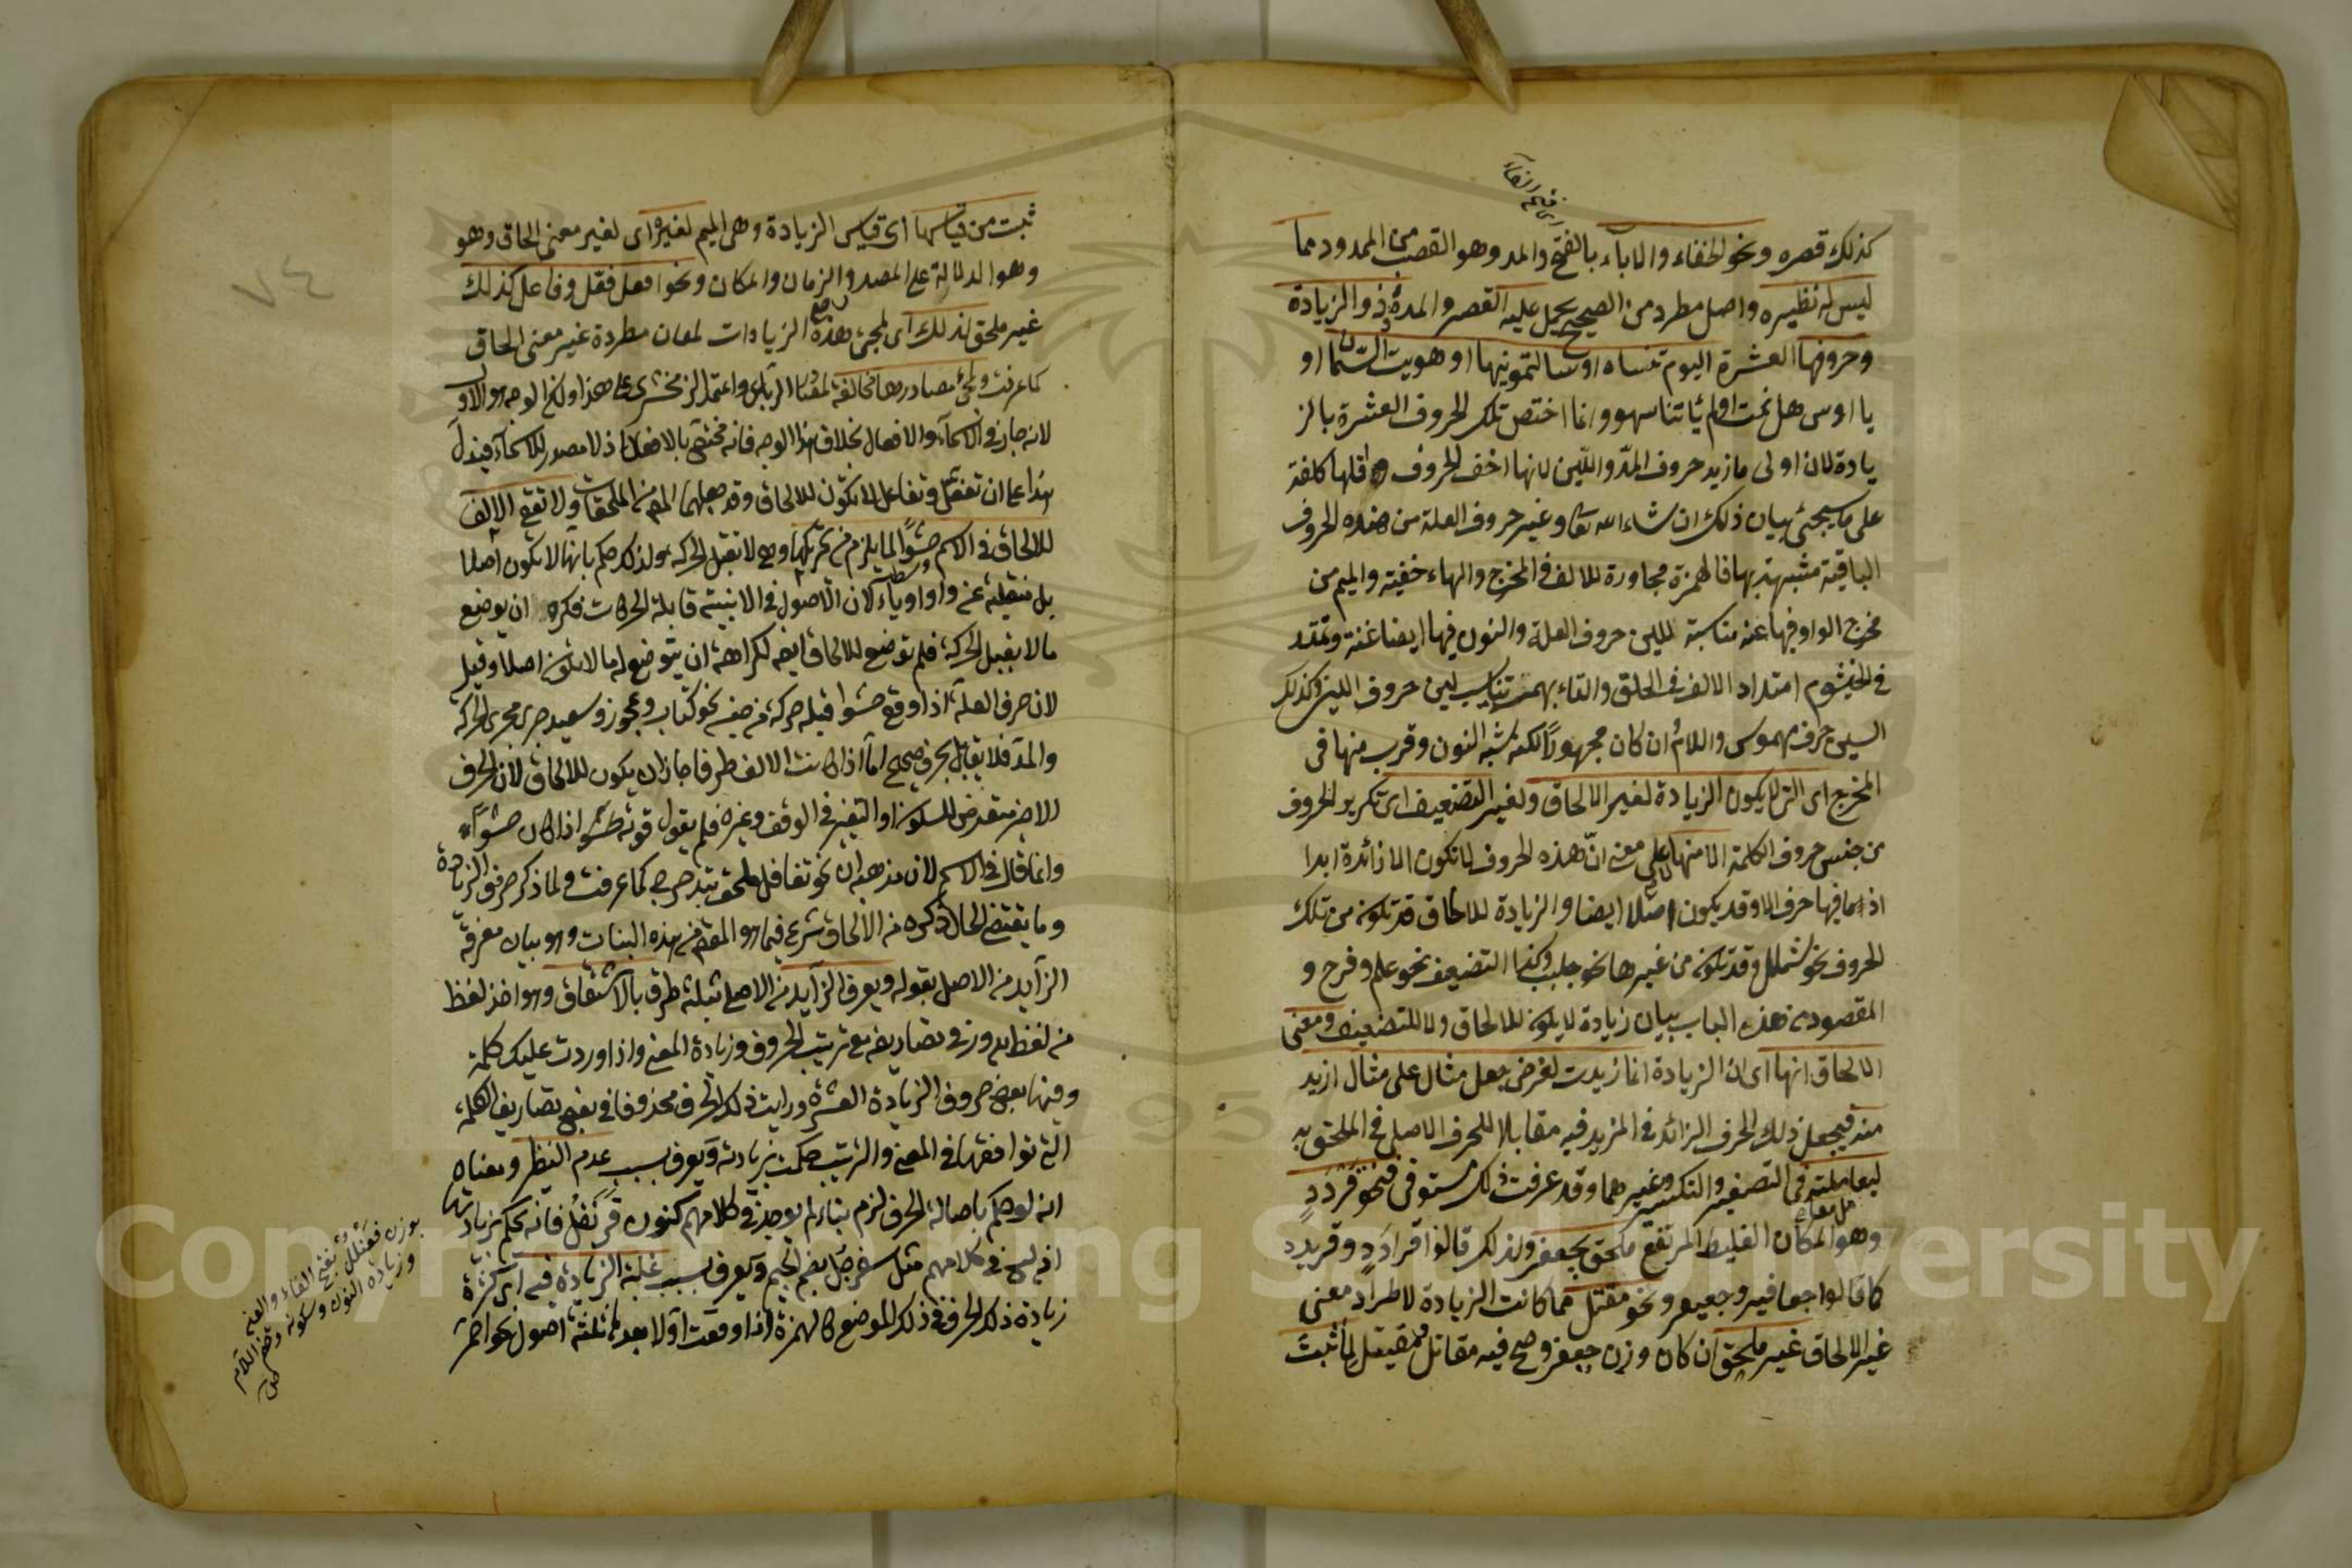 كذلك قصره ونحو الخفاء والاباء بالفتح والمد وهو القصب من الممدود مما
ليس له نظيره واصل مطرد من الصحيح يحمل عليه القصر والمدة ذو الزيادة
وحروفها العشرة اليوم تنساه او سالتمونيها او هويت السمان او
يا اوس هل نمت او لم يأتنا سهو وانما اختص تلك الحروف العشرة بالز
يادة لان اولى ما زيد حروف المد واللين لانها اخف الحروف واقلها كلفة
على ما سيجئ بيان ذلك ان شاء الله تعا وغير حروف العلة من هذه الحروف
الباقية مشبهة بها فالهمزة مجاورة للالف في المخرج والهاء خفية والميم من
مخرج الواو وفيها غنه مناسبة للين حروف العلة والنون فيها ايضا غنة وتمتد
في الخيشوم امتداد الالف في الحلق والتاء بهمس تناسب لين حروف اللين وكذلك
السين حرف مهموس واللام ان كان مجهورا لكنه شبه النون وقرب منها في
المخرج اى التى لا يكون الزيادة لغير الالحاق ولغير التضعيف اى تكرير الحروف
من جنس حروف الكلمة الا منها على معنى ان هذه الحروف لا تكون الا زائدة ابدا
اذ ما فيها حرف الا وقد يكون اصلا ايضا والزيادة للالحاق قد تكون من تلك
الحروف نحو شملل وقد تكون من غيرها نحو جلبب وكذا التضعيف نحو علم وفرح و
المقصود من هذه الباب بيان زيادة لا يكون للالحاق ولا للتضعيف ومعنى
الالحاق انها اى ان الزيادة انما زيدت لغرض جعل مثال على مثال ازيد
منه فيجعل ذلك الحرف الزائد في المزيد فيه مقابلا للحرف الاصلي في الملحق به
ليعامل معاملته في التصغير والتكسير وغيرهما وقد عرفت ذلك مستوفى فنحو قردد
وهو المكان الغليظ المرتفع ملحق بجعفر ولذلك قالوا قرادد وقريدد
كما قالوا جعافير وجعيفر ونحو مقتل مما كانت الزيادة لاطراد معنى
غير الالحاق غير ملحق ان كان وزن جعفر وصح فيه مقاتل ومقيتل لما ثبت
ثبت من قياسها اى قياس الزيادة وهى الميم لغيره اى لغير معنى الحاق وهو
وهو الدلالة على المصدر والزمان والمكان ونحو افعل فعّل وفاعل كذلك
غير ملحق لذلك اى لمجئ هذه الزيادات لمعان مطردة غير معنى الحاق
كما عرفت ولمجئ مصادرها مخالفة لمصادر الرباعي واعتمد الزمخشرى على هذا ولكن الوجه هو الاول
لانه جار في الاسماء والافعال بخلاف هذا الوجه فانه مختص بالافعال اذ لا مصدر للاسماء فيدل
هذا على ان تفعّل وتفاعل لا تكون للالحاق وقد جعلهما المص من الملحقات ولا تقع الالف
للالحاق في الاسم حشوا لما يلزم من تحريكها وهى لا تقبل الحركة ولذلك حكم بانها لا تكون اصلا
بل منقلبة عن واو او ياء لان الاصول في الابنية قابلة الحركات فكره ان يوضع
ما لا يقبل الحركة فلم توضع للالحاق ايضا لكراهة ان يتوضع لها لا يكون اصلا وقيل
لان حرف العلة اذا وقع حشوا قبله حركة من جنسه نحو كتاب وعجوز وسعيد جرى مجرى الحركة
والمد فلا يقابل بحرف صحيح اما اذا كانت الالف طرفا جاز ان يكون للالحاق لان الحرف
الاخير متعرض للسكون والتغير في الوقف وغيره فلم يقو قوته حشوا اذا كان حشوا
وانما قال في الاسم لان مذهبه ان نحو تغافل ملحق بتدحرج كما عرفت ولما ذكر حروف الزيادة
وما يقتضي الحال ذكره من الالحاق شرع فيما هو المقص من هذه البنات وهو بيان معرفة
الزايد من الاصل بقوله ويعرف الزايد من الاصلى بثلثة طرق بالاشتقاق وهو اخذ لفظ
من لفظ يوزن تصاريفه مع ترتيب الحروف وزيادة المعنى واذا وردت عليك كلمة
وفيها بعض حروف الزيادة العشرة ورايت ذلك الحرف محذوفا في بعض تصاريف الكلمة
التى توافقها في المعنى والترتيب حكمت بزيادته ويعرف بسبب عدم النظير ومعناه
انه لو حكم باصالة الحرف لزم بناء لم يوجد في كلامهم كنون قرنفل فانه يحكم بزيادتها
اذ ليس في كلامهم مثل سفرجل بضم الجيم ويعرف بسبب غلبة الزيادة فيه اى كثرة
زيادة ذلك الحرف في ذلك الموضع كالهمزة اذا وقعت اولا بعدها ثلثة اصول نحو احمر
بوزن فعنلل بفتح الفاء والعين
وزيادة النون وسكونه وضم اللام
٧٤